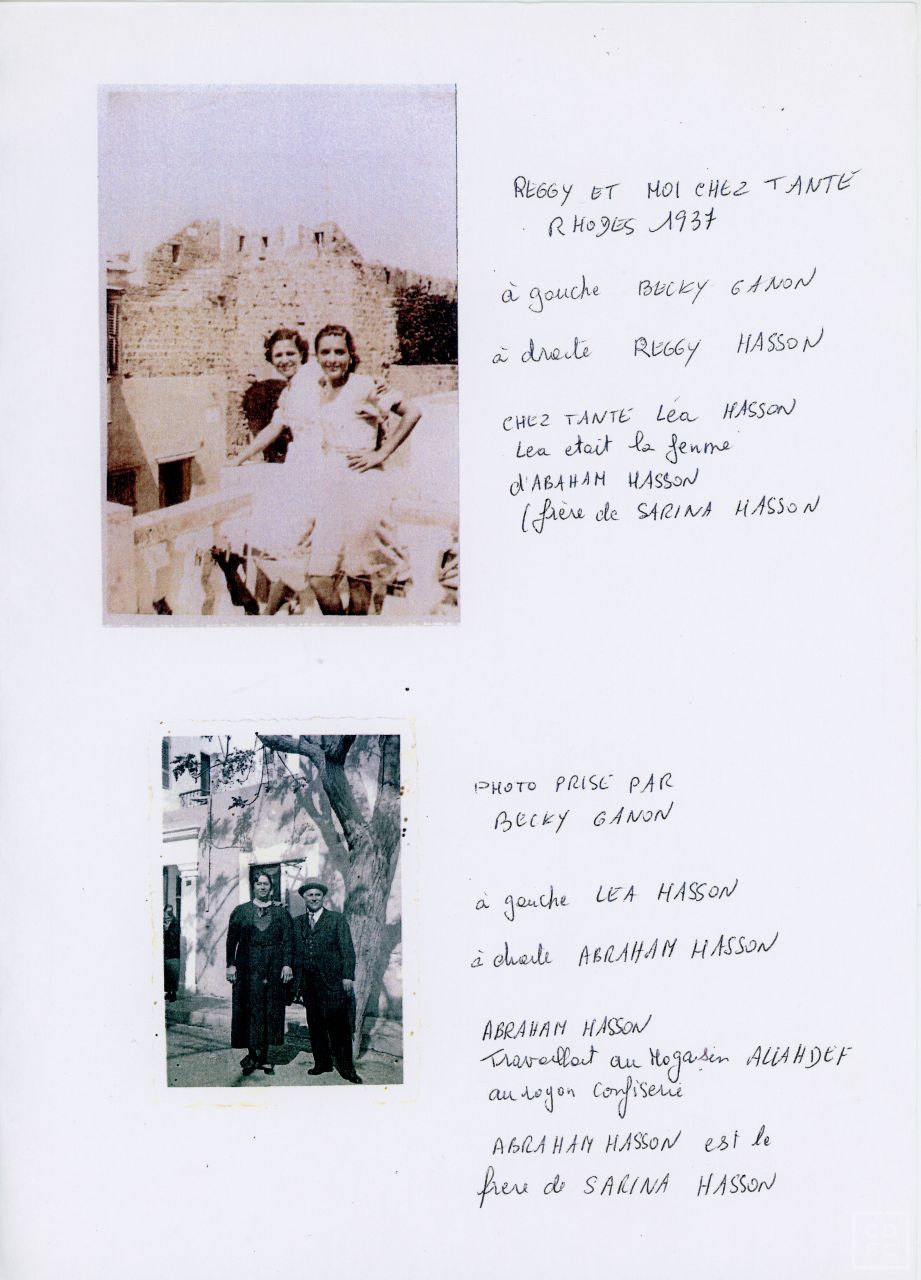 REGGY ET MOI CHEZ TANTE
RHODES 1937
à gauche BECKY GANON
à droite REGGY HASSON
CHEZ TANTE Léa HASSON
Lea etait la femme
d'ABAHAM HASSON
(frère de SARINA HASSON
PHOTO PRISE PAR
BECKY GANON
à gauche LEA HASSON
à droite ABRAHAM HASSON
ABRAHAM HASSON
Travaillait au Magasin ALHADEF
au rayon Confiserie
ABRAHAM HASSON est le
frere de SARINA HASSON
CDEC